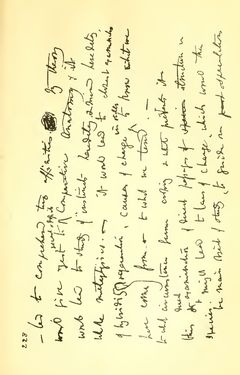 228
– led to comprehend true affinities. My theory
would give zest to recent & fossil Comparative Anatomy, & it
would lead to study of instincts, heredity & mind heredity,
whole metaphysics. – it would lead to closest examination
of hybridity & generation, causes of change in order to know what we
have come from & to what we tend. –
to what circumstances favour crossing & what prevents it
this & direct examination of direct passages of structure in
species, might lead to laws of change, which would then
be main object of study, to guide our speculations